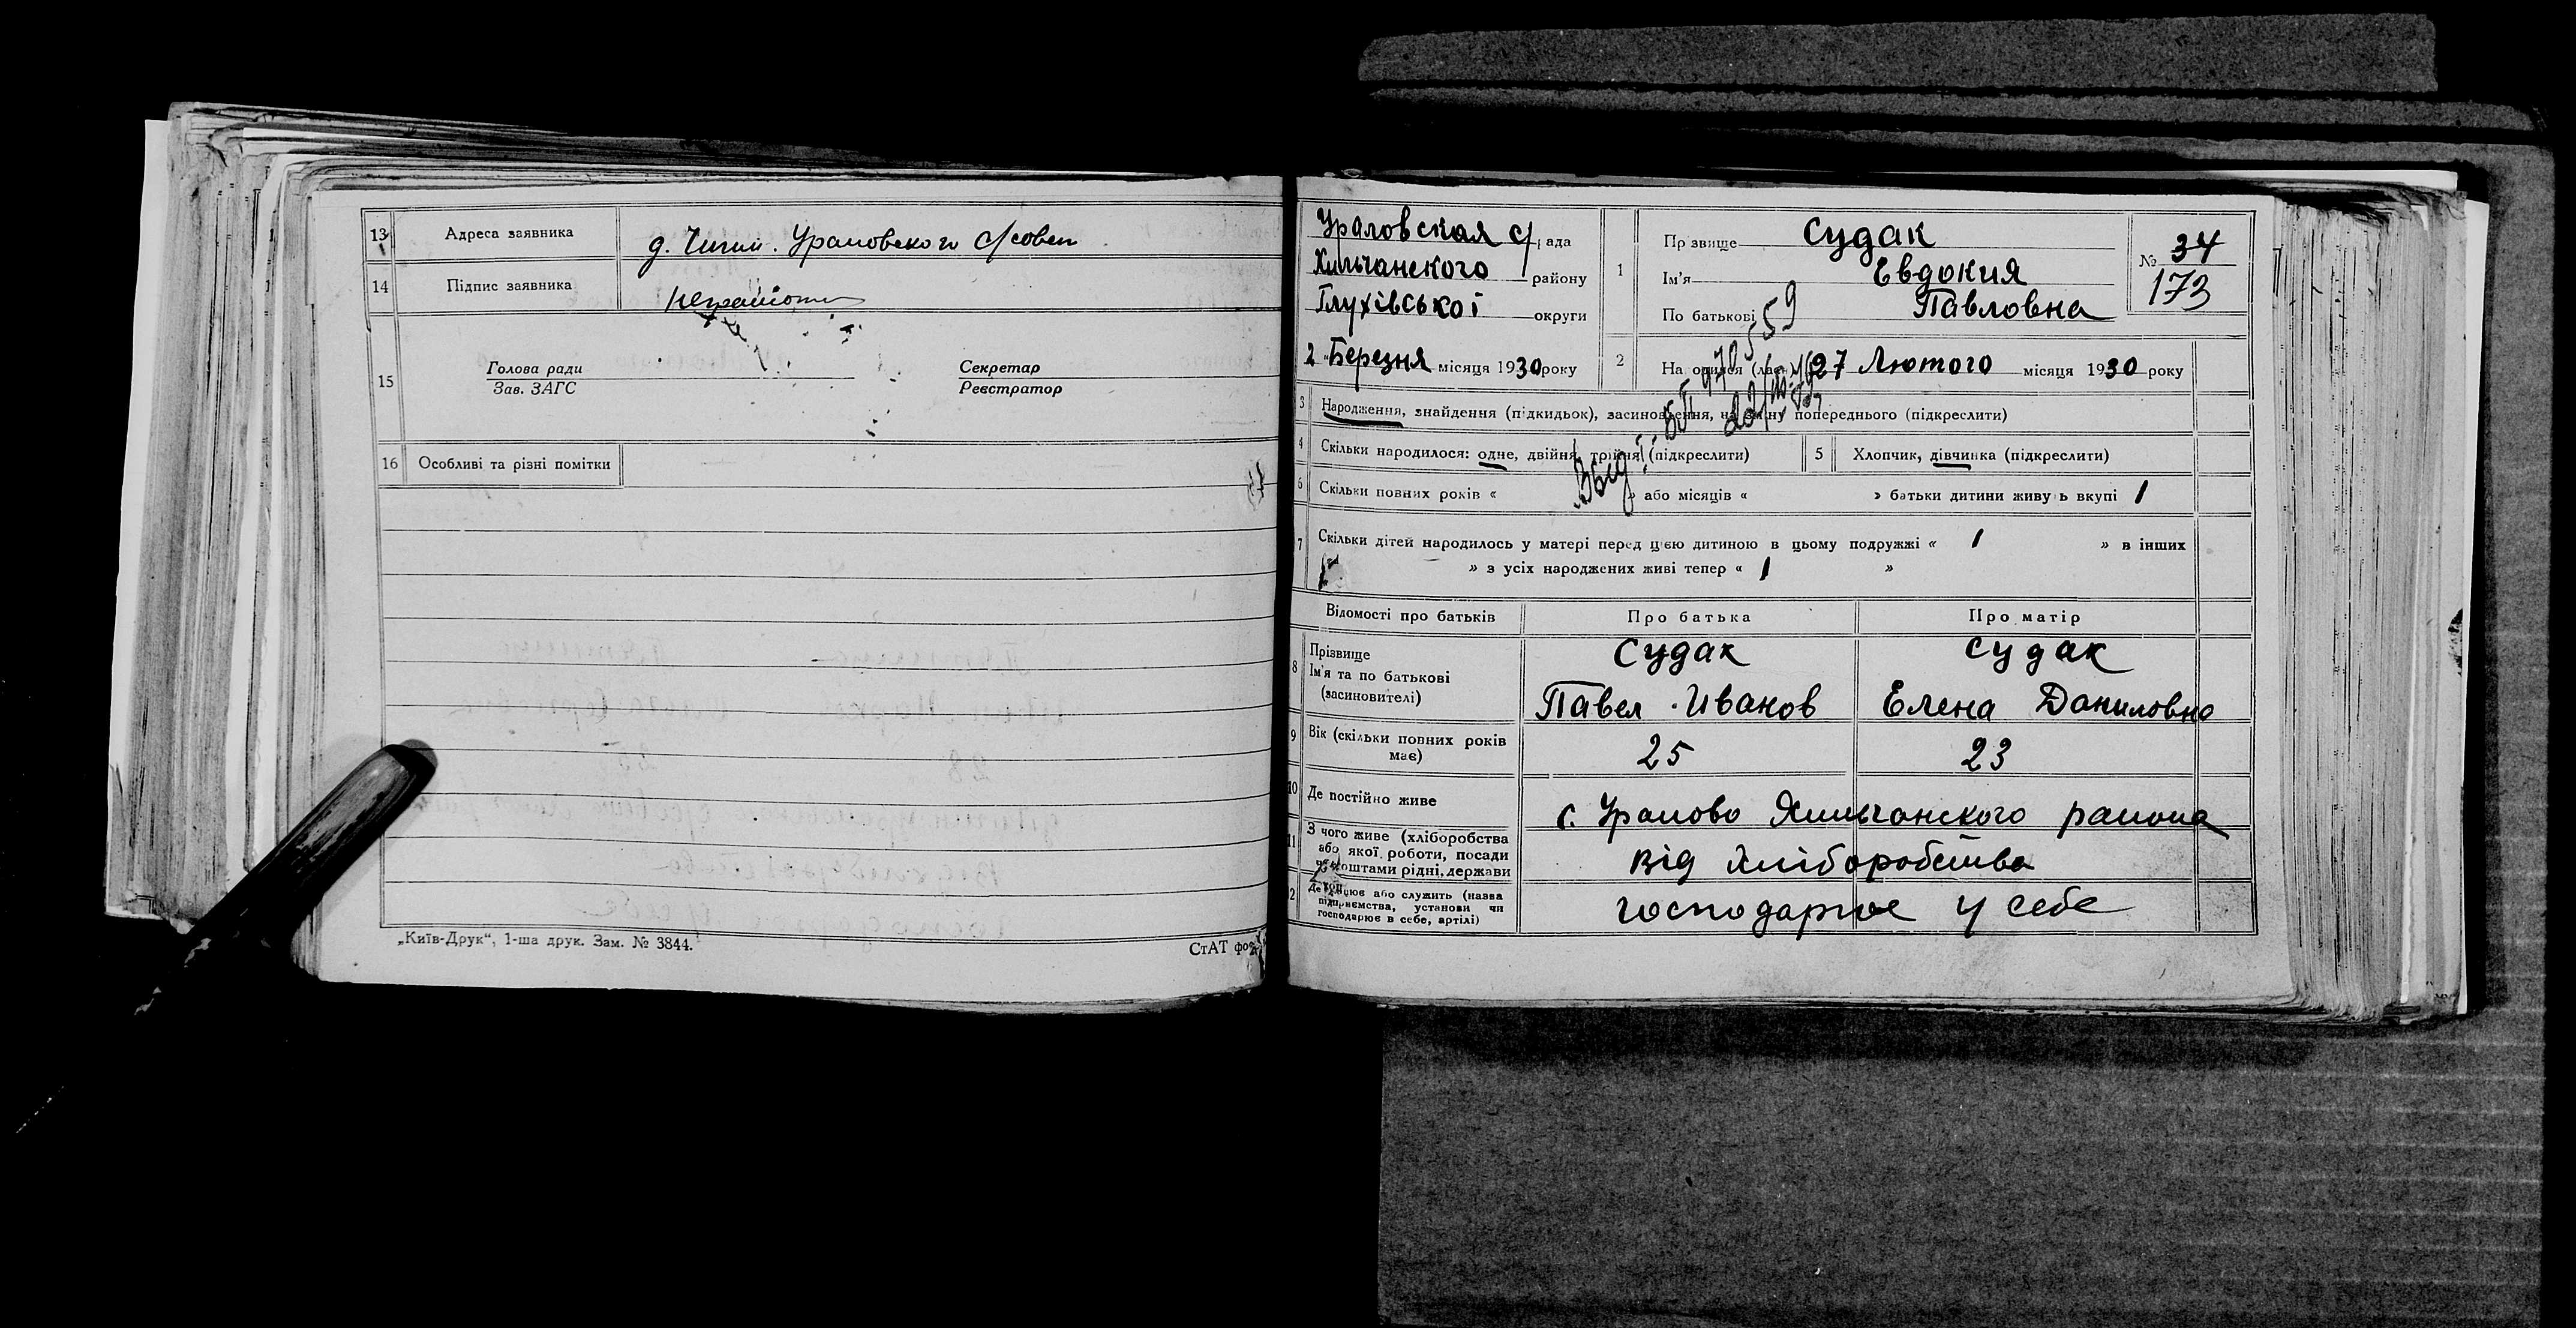 13 Адреса заявника д. Чигин. Ураловского с/совет
14 Підпис заявника
15 Голова ради Секретар
Зав. ЗАГС Реєстратор
16 Особливі та різні помітки
„Київ-Друк“, 1-ша друк. Зам. № 3844.
СтАТ фо
Ураловская с/ рада
Хильчанского району
Глухівської округи
2 „Березня місяця 1930 року
1 Прізвище Судак
Ім'я Евдокия
По батькові Павловна
№ 34
173
2 На 27 Лютого місяця 1930 року
559
3 Народження, знайдення (підкидьок), засиновлення, на зміну попереднього (підкреслити)
4 Скільки народилося: одне, двійня, трійня (підкреслити) 5 Хлопчик, дівчинка (підкреслити)
6 Скільки повних років « » або місяців « » батьки дитини живуть вкупі 1
7 Скільки дітей народилось у матері перед цією дитиною в цьому подружжі « 1 » в інших
» з усіх народжених живі тепер « 1 »
Відомості про батьків Про батька Про матір
8 Прізвище Судак Судак
Ім'я та по батькові
(засиновителі) Павел Иванов Елена Даниловна
9 Вік (скільки повних років має) 25 23
10 Де постійно живе с. Уралово Хильчанского района
11 З чого живе (хліборобства
або якої роботи, посади
чи коштами рідні, держави від хліборобства
12 Де працює або служить (назва
підприємства, установи чи
господарює в себе, артілі) господарює у себе